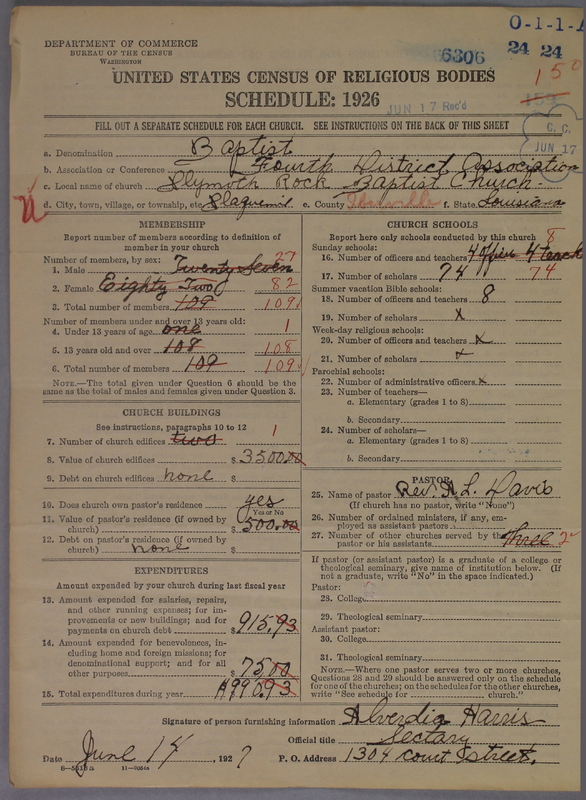 DEPARTMENT OF COMMERCE
BUREAU OF THE CENSUS
WASHINGTON
0-1-1-1
66306
24 24
150
153
UNITED STATES CENSUS OF RELIGIOUS BODIES
SCHEDULE: 1926
JUN 17 Rec'd
G. C.
JUN 17
FILL OUT A SEPARATE SCHEDULE FOR EACH CHURCH. SEE INSTRUCTIONS ON THE BACK OF THIS SHEET
a. Denomination Baptist
b. Association or Conference Fourth District Association
c. Local name of church Plymoth Rock Baptist Church
d. City, town, village, or township, etc. Plaquemi e. County Iberville f. State Louisiana
MEMBERSHIP
Report number of members according to definition of
member in your church
Number of members, by sex: 27
1. Male Twenty Seven
2. Female Eighty Two 82
3. Total number of members 109 109
Number of members under and over 13 years old:
4. Under 13 years of age one 1
5. 13 years old and over 108 108
6. Total number of members 109 109
NOTE.—The total given under Question 6 should be the
same as the total of males and females given under Question 3.
CHURCH BUILDINGS
See instructions, paragraphs 10 to 12
7. Number of church edifices two 1
8. Value of church edifices $ 3500.00
9. Debt on church edifices none $
10. Does church own pastor's residence yes
Yes or No
11. Value of pastor's residence (if owned by
church) $ 500.00
12. Debt on pastor's residence (if owned by
church) none $
EXPENDITURES
Amount expended by your church during last fiscal year
13. Amount expended for salaries, repairs,
and other running expenses; for im-
provements or new buildings; and for
payments on church debt $ 915.93
14. Amount expended for benevolences, in-
cluding home and foreign missions; for
denominational support; and for all
other purposes $ 75.00
15. Total expenditures during year $ 990.93
CHURCH SCHOOLS
Report here only schools conducted by this church
Sunday schools: 8
16. Number of officers and teachers 4 offices 4 teach
17. Number of scholars 74 74
Summer vacation Bible schools:
18. Number of officers and teachers 8
19. Number of scholars x
Week-day religious schools:
20. Number of officers and teachers x
21. Number of scholars x
Parochial schools:
22. Number of administrative officers x
23. Number of teachers—
a. Elementary (grades 1 to 8)
b. Secondary
24. Number of scholars—
a. Elementary (grades 1 to 8)
b. Secondary
PASTOR
25. Name of pastor Rev. A. L. Davis
(If church has no pastor, write "None")
26. Number of ordained ministers, if any, em-
ployed as assistant pastors
27. Number of other churches served by the
pastor or his assistants Three 2
If pastor (or assistant pastor) is a graduate of a college or
theological seminary, give name of institution below. (If
not a graduate, write "No" in the space indicated.)
Pastor:
28. College
29. Theological seminary
Assistant pastor:
30. College
31. Theological seminary
NOTE.—Where one pastor serves two or more churches,
Questions 28 and 29 should be answered only on the schedule
for one of the churches; on the schedules for the other churches,
write "See schedule for church."
Signature of person furnishing information Alverdia Harris
Official title Sectary
Date June 14, 1927 P. O. Address 1304 Court Street.